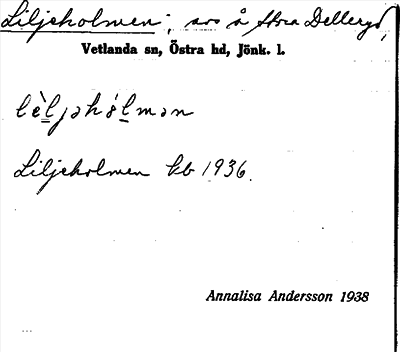 Liljeholmen; avs å Stora Delleryd,
Vetlanda sn, Östra hd, Jönk. l.
lèljəhólmən
Liljeholmen kb 1936.
Annalisa Andersson 1938